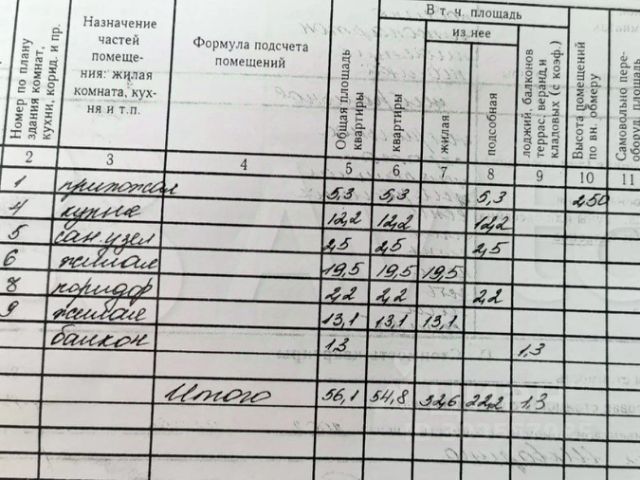 Номер по плану здания комнат, кухни, корид. и пр.
Назначение частей помеще-ния: жилая комната, кух-ня и т.п.
Формула подсчета помещений
Общая площадь квартиры
В т. ч. площадь
из нее
квартиры
жилая
подсобная
лоджий, балконов террас, веранд и кладовых (с коэф.)
Высота помещений по вн. обмеру
Самовольно пере-оборуд. площадь
2 3 4 5 6 7 8 9 10 11
1 прихожая 5,3 5,3 5,3 250
4 кухня 12,2 12,2 12,2
5 сан.узел 2,5 2,5 2,5
6 жилая 19,5 19,5 19,5
8 коридор 2,2 2,2 2,2
9 жилая 13,1 13,1 13,1
балкон 1.3 1,3
Итого 56,1 54,8 32,6 22,2 1.3